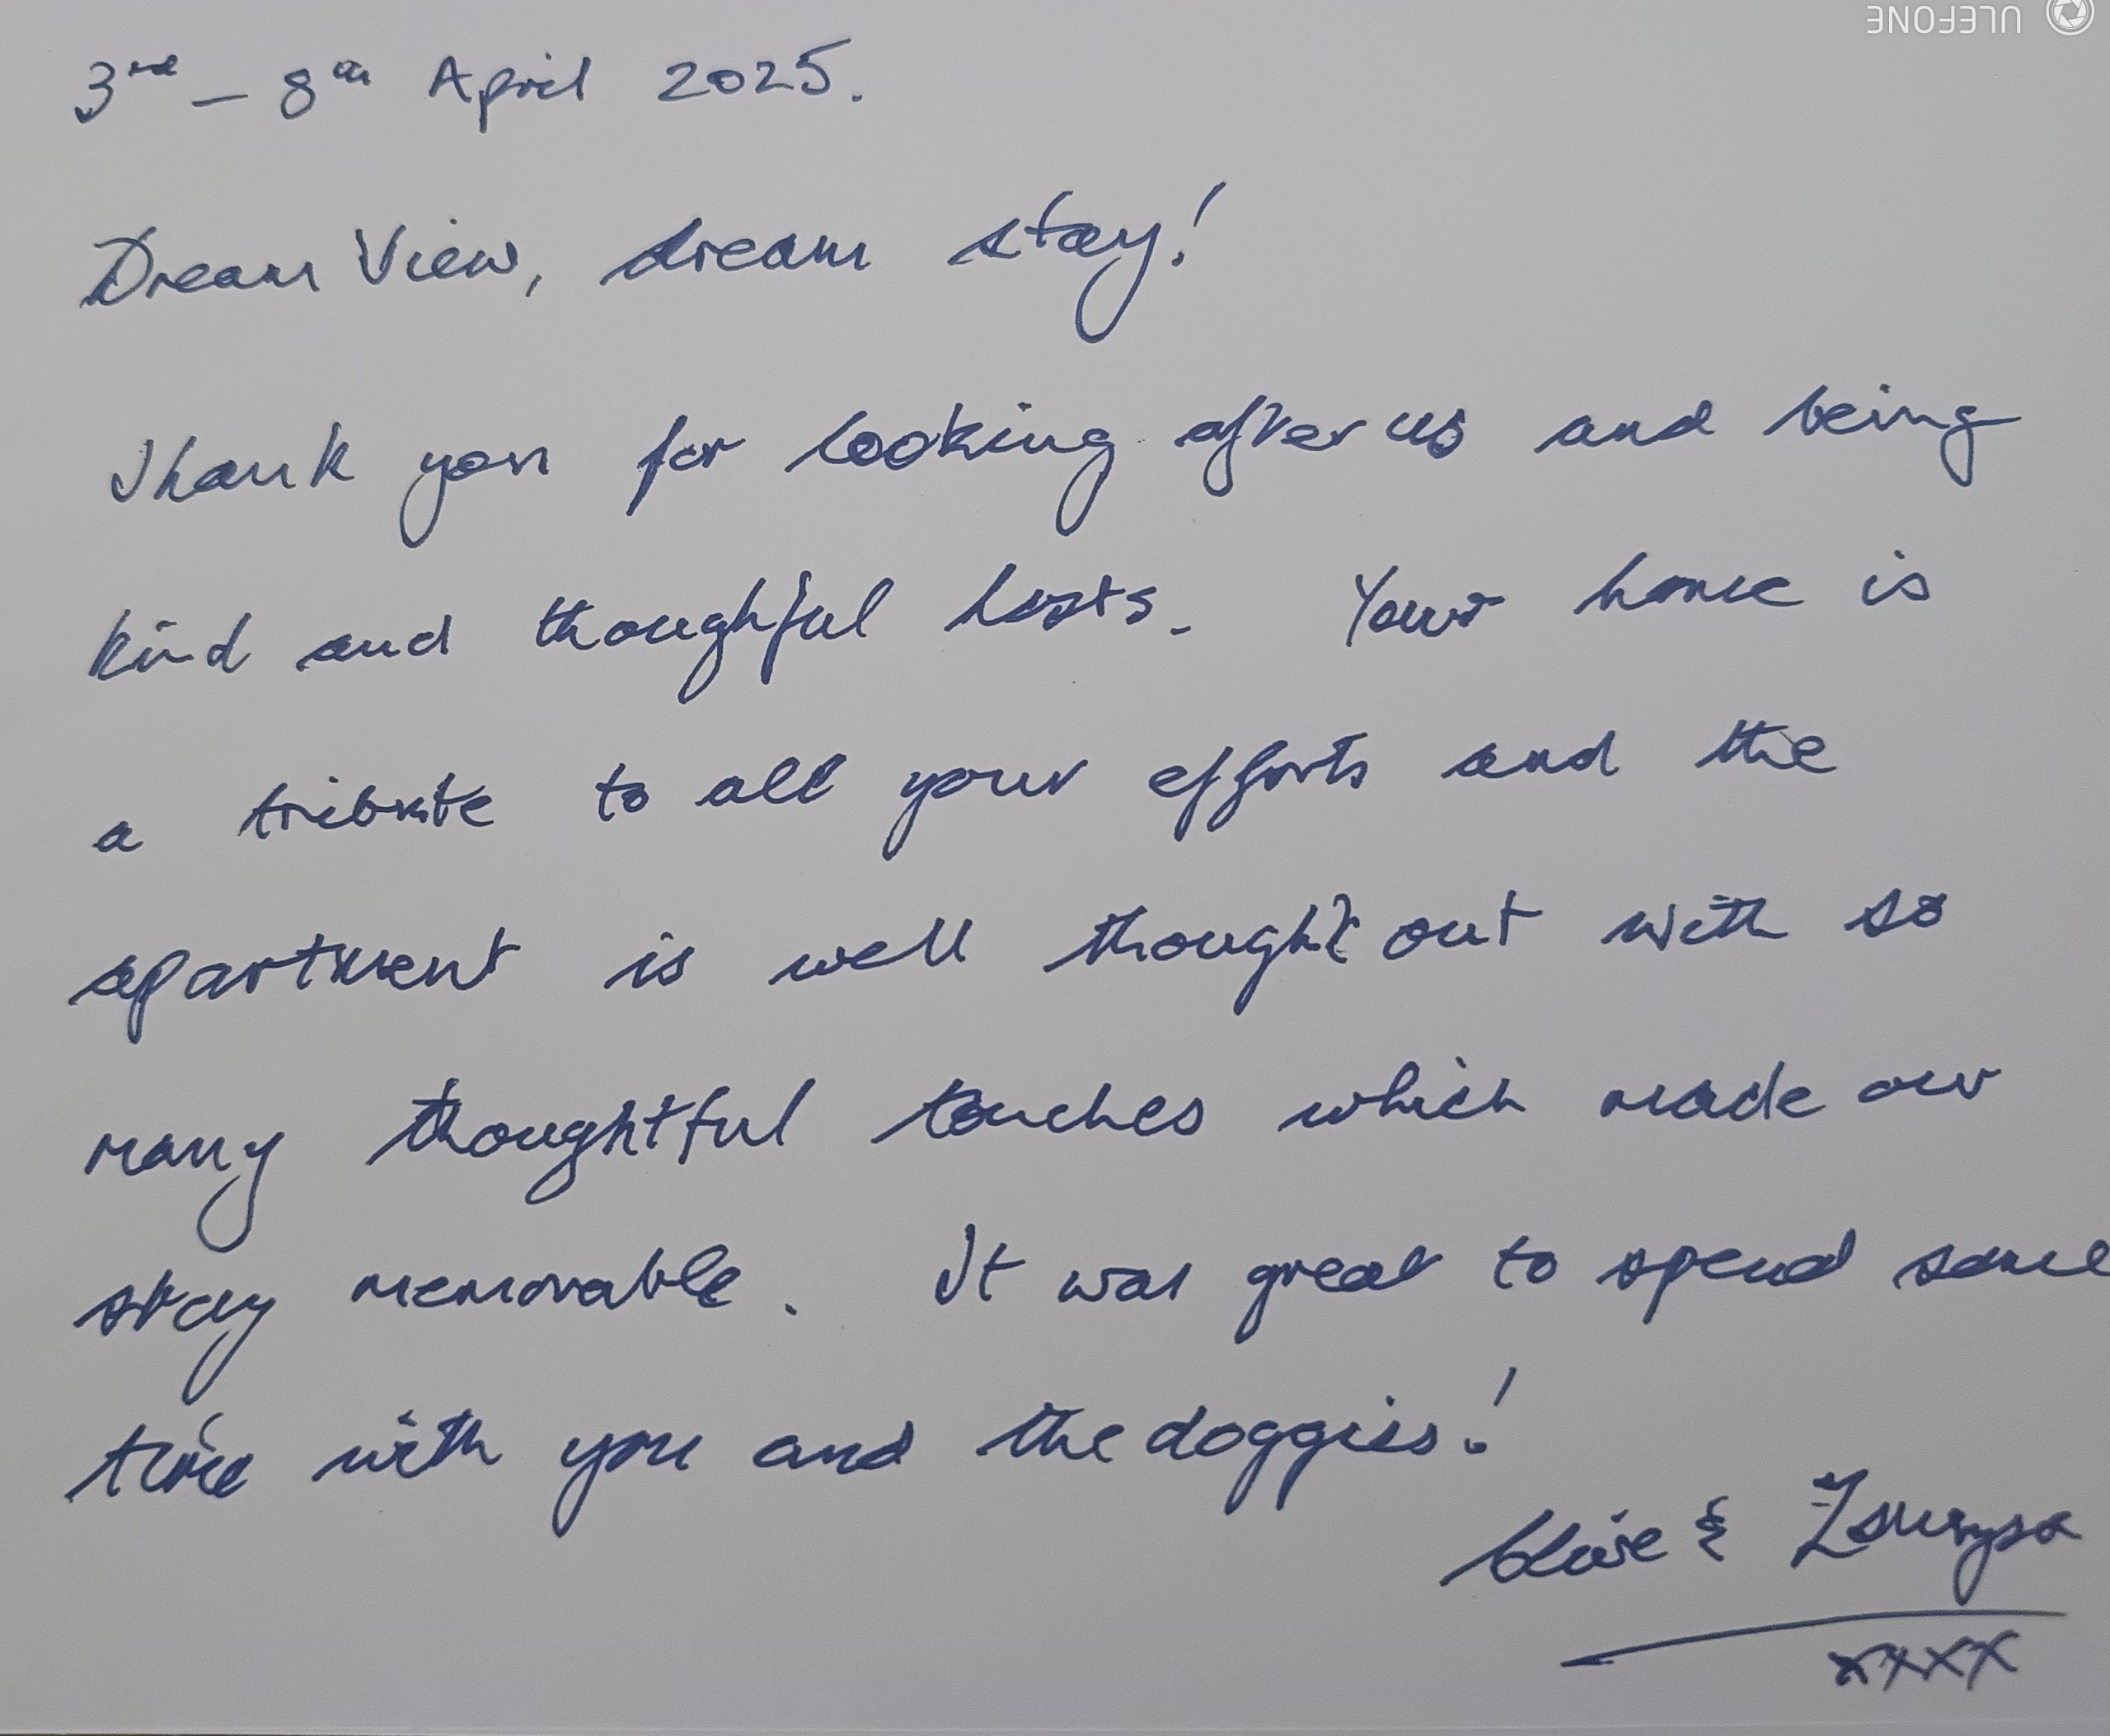 3rd – 8th April 2025.
Dream View, dream stay!
Thank you for looking after us and being
kind and thoughtful hosts. Your home is
a tribute to all your efforts and the
apartment is well thought out with so
many thoughtful touches which made our
stay memorable. It was great to spend some
time with you and the doggies!
&
xxxx
ULEFONE